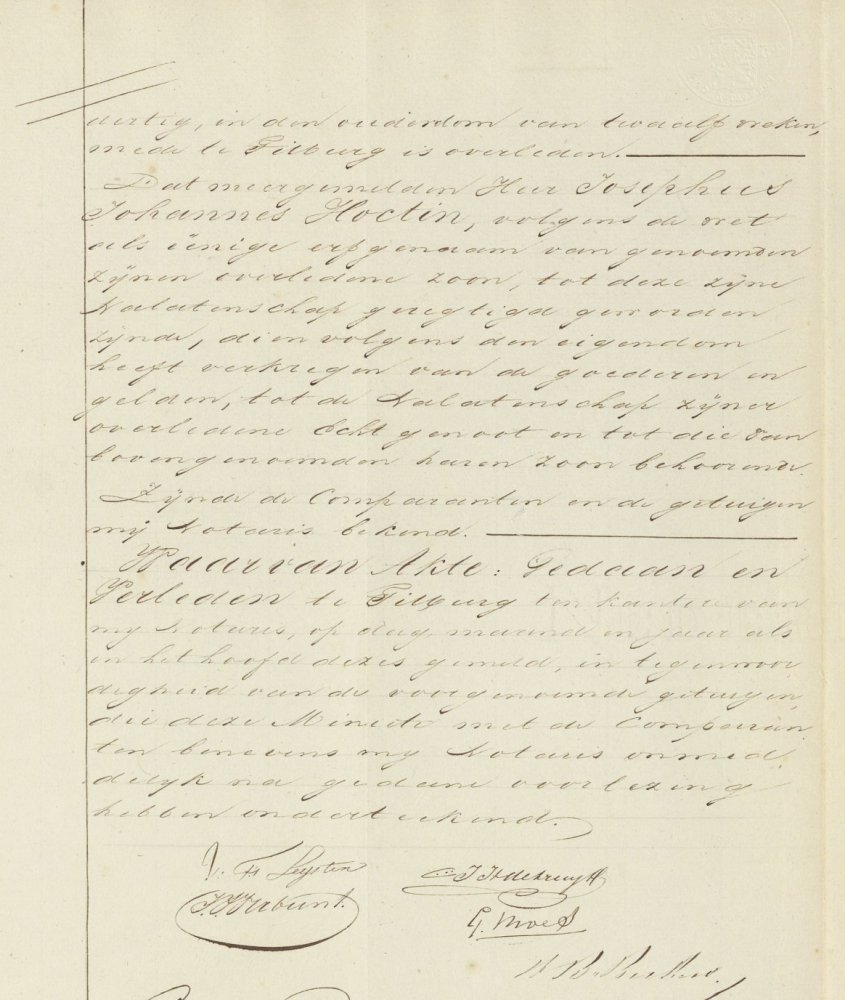 dertig, in den ouderdom van twaalf weken,
mede te Tilburg is overleden.
Dat meergemelden Heer Josephus
Johannes Hoctin, volgens de wet
als eenige erfgenaam van genoemden
zijnen overledene zoon, tot deze zijne
Nalatenschap geregtigd geworden
zijnde, dien volgens den eigendom
heeft verkregen van de goederen en
gelden, tot de Nalatenschap zijner
overledene Echtgenoot en tot die van
bovengenoemden haren zoon behoorende.
Zijnde de Comparanten en de getuigen
mij Notaris bekend.
Waarvan Akte: Gedaan en
Verleden te Tilburg ten kantore van
mij Notaris, op dag, maand en jaar als
in het hoofd dezes gemeld, in tegenwoor
digheid van de voorgenoemde getuigen,
die deze Minute met de Comparan
ten benevens mij Notaris onmid
delijk na gedane voorlezing
hebben onderteekend.